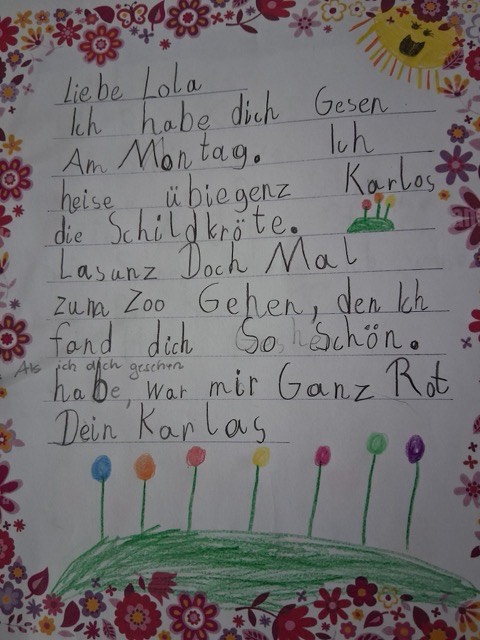 Liebe Lola
Ich habe dich Gesen
Am Montag. Ich
heise übiegenz Karlos
die Schildkröte.
Lasunz Doch Mal
zum Zoo Gehen, den Ich
fand dich So Schön.
Als ich dich gesehen
habe, war mir Ganz Rot
Dein Karlas